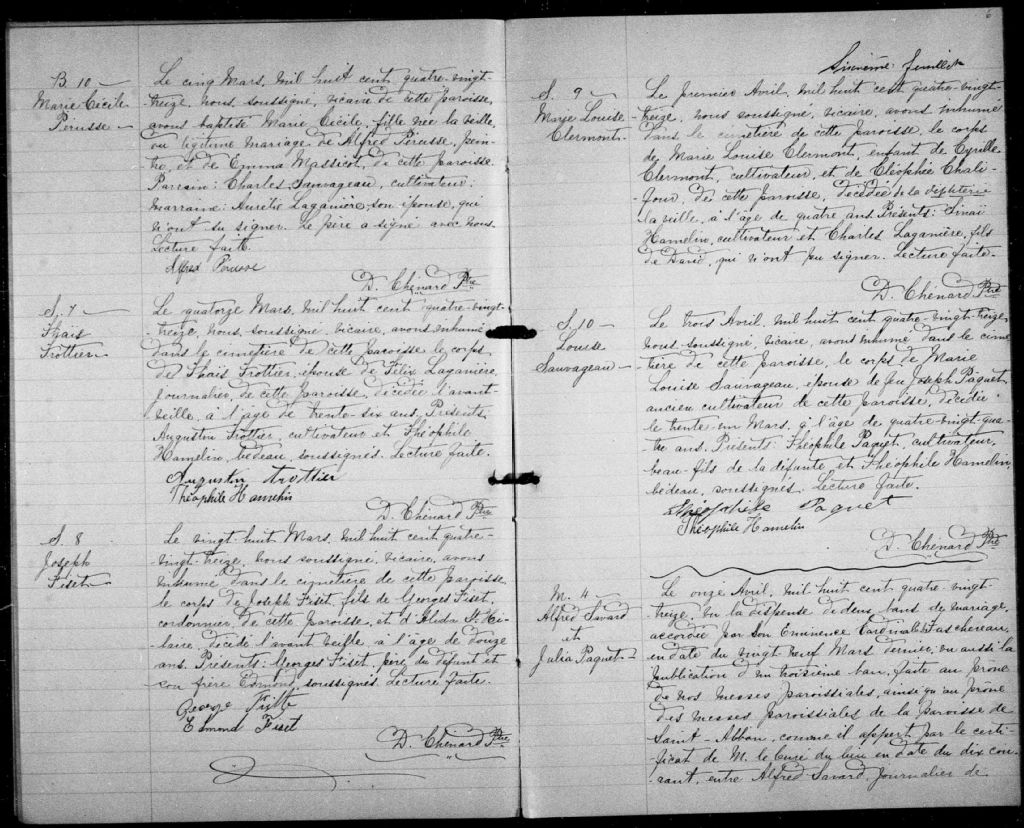 B. 10
Marie Cécile
Pérusse
Le cinq Mars, mil huit cent quatre-vingt-
treize, nous, soussigné, vicaire de cette paroisse,
avons baptisé Marie Cécile, fille née la veille,
du légitime mariage de Alfred Pérusse, pein-
tre, et de Emma Massicot, de cette paroisse.
Parrain: Charles Sauvageau, cultivateur;
marraine: Aurélie Laganière, son épouse, qui
n'ont su signer. Le père a signé avec nous.
Lecture faite.
Alfred Perusse
D. Chénard Ptre
S. 7
Thais
Trottier
Le quatorze Mars, mil huit cent quatre-vingt-
treize, nous, soussigné, vicaire, avons inhumé
dans le cimetière de cette paroisse le corps
de Thais Trottier, épouse de Félix Laganière,
journalier, de cette paroisse, décédée l'avant-
veille, à l'âge de trente-six ans. Présents,
Augustin Trottier, cultivateur et Théophile
Hamelin, bedeau, soussignés. Lecture faite.
Augustin Trottier
Théophile Hamelin
D. Chénard Ptre
S. 8
Joseph
Fiset
Le vingt huit Mars, mil huit cent quatre-
vingt-treize, nous soussigné, vicaire, avons
inhumé dans le cimetière de cette paroisse
le corps de Joseph Fiset, fils de Georges Fiset,
cordonnier, de cette paroisse, et d'Eluda St-Hi-
laire, décédé l'avant veille à l'âge de douze
ans. Présents: Georges Fiset, père du défunt et
son frère Edmond, soussignés. Lecture faite.
George Fisette
Edmond Fiset
D. Chénard Ptre
6
Sixième feuillet
S. 9
Marie Louise
Clermont
Le premier Avril, mil huit cent quatre-vingt-
treize, nous, soussigné, vicaire, avons inhumé
dans le cimetière de cette paroisse, le corps
de Marie Louise Clermont, enfant de Cyrille
Clermont, cultivateur, et de Cléophée Chali-
four, de cette paroisse, décédée de la diphterie
la veille, à l'âge de quatre ans. Présents: Sinaï
Hamelin, cultivateur et Charles Laganière, fils
de David, qui n'ont pu signer. Lecture faite.
D. Chénard Ptre
S. 10
Louise
Sauvageau
Le trois Avril, mil huit cent quatre-vingt-treize,
nous, soussigné, vicaire, avons inhumé dans le cime-
tière de cette paroisse, le corps de Marie
Louise Sauvageau, épouse de feu Joseph Paquet,
ancien cultivateur de cette paroisse, décédée
le trente un Mars, à l'âge de quatre-vingt-qua-
tre ans. Présents: Théophile Paquet, cultivateur,
beau-fils de la défunte et Théophile Hamelin,
bedeau, soussignés. Lecture faite.
Theophille Paquet
Théophile Hamelin
D. Chénard Ptre
M. 4
Alfred Savard
et
Julia Paquet
Le onze Avril, mil huit cent quatre-vingt-
treize, vu la dispense de deux bans de mariage,
accordée par Son Eminence Cardinal E. Taschereau,
en date du vingt neuf Mars dernier, vu aussi la
publication d'un troisième ban, faite au prône
de nos messes paroissiales, ainsi qu'au prône
des messes paroissiales de la paroisse de
Saint-Alban, comme il appert par le certi-
ficat de M. le Curé du lieu en date du dix cou-
rant, entre Alfred Savard, journalier de